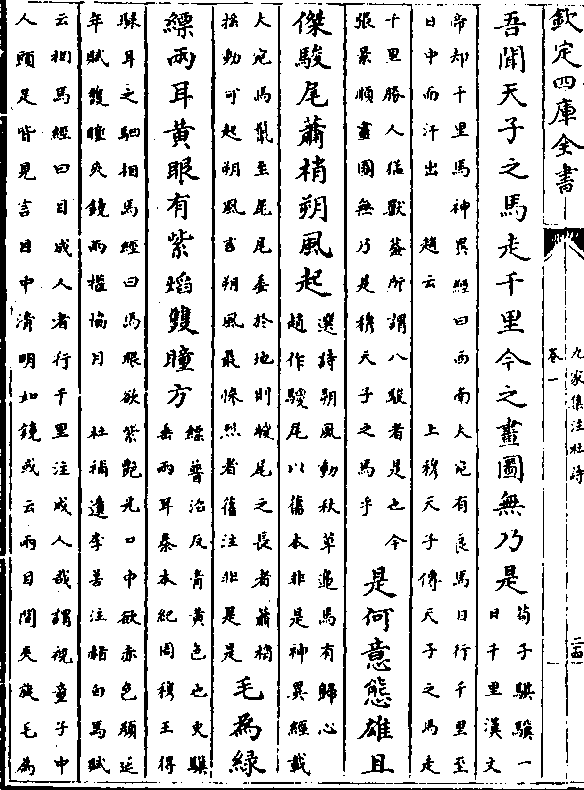 欽定四庫全書
九家集注杜詩
卷一
吾聞天子之馬走千里今之畫圖無乃是
荀子騏驥一
日千里漢文
帝却千里馬神異經曰西南大宛有良馬日行千里至
日中而汗出 趙云 上穆天子傳天子之馬走
千里勝人猛獸蓋所謂八駿者是也今
張景順畫圖無乃是穆天子之馬乎
是何意態雄且
傑駿尾蕭梢朔風起
選詩朔風動秋草邉馬有歸心
趙作騣尾以舊本非是神異經載
大宛馬鬛至尾尾委於地則騣尾之長者蕭梢
揺動可起朔風言朔風最慘烈者舊注非是是
毛為緑
縹兩耳黄眼有紫熖雙瞳方
縹普沼反青黄色也史驥
兩耳秦本紀周穆王得
騄耳之駟相馬經曰馬眼欲紫艶光口中欲赤色顔延
年賦雙瞳夾鏡兩權協月 杜補遺李善注赭白馬賦
云相馬經曰目成人者行千里注成人者謂視童子中
人頭足皆見言目中清明如鏡或云兩目間夾旋毛為